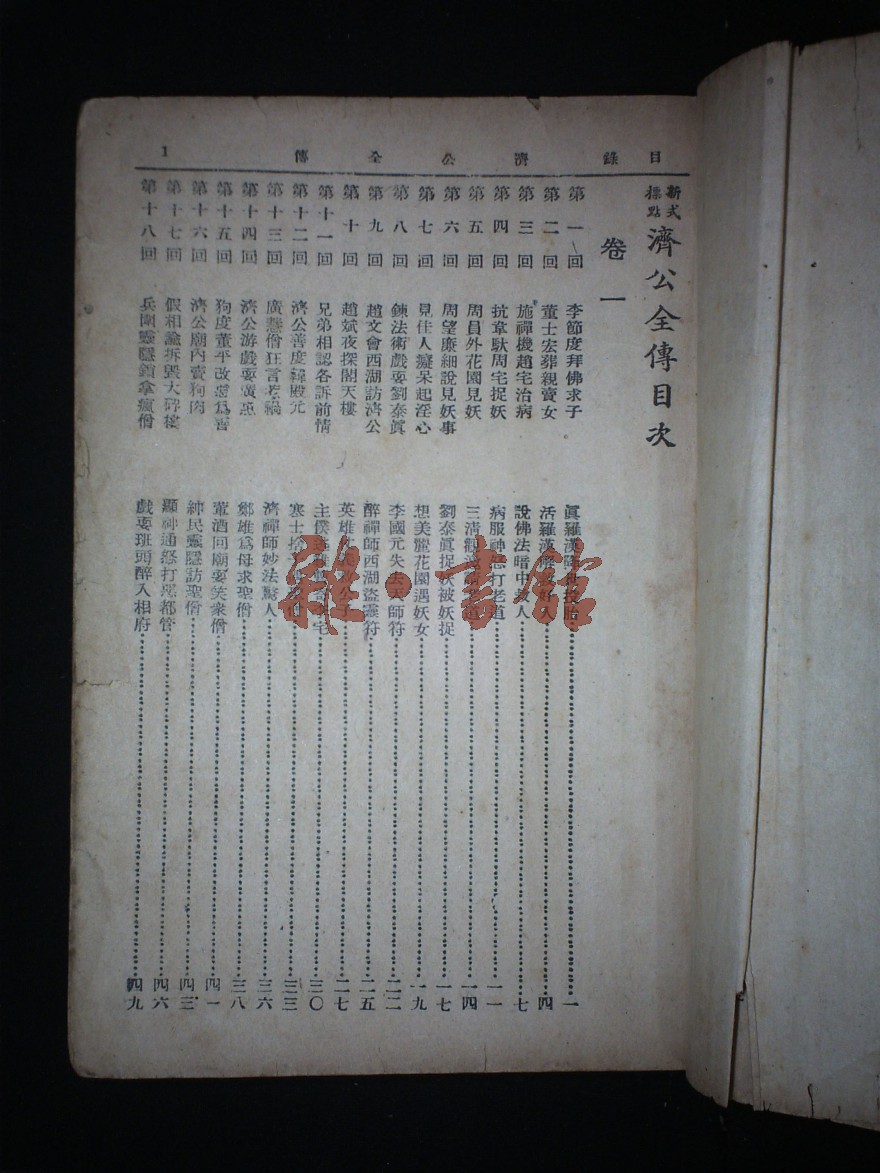 目錄 濟公全傳 1
新式標點 濟公全傳目次
卷一
第一回 李節度拜佛求子 眞羅漢降世投胎 一
第二回 董士宏葬親賣女 活羅漢解救好人 四
第三回 施禪機趙宅治病 說佛法暗中救人 七
第四回 抗韋馱周宅捉妖 病服神怒打老道 一一
第五回 周員外花園見妖 三清觀 一四
第六回 周望廉細說見妖事 劉泰眞捉妖被妖捉 一七
第七回 見佳人癡呆起淫心 想美麗花園遇妖女 一九
第八回 鍊法術戲耍劉泰眞 李國元失去天師符 二二
第九回 趙文會西湖訪濟公 醉禪師西湖盜靈符 二五
第十回 趙斌夜探閣天樓 英雄 公子 二七
第十一回 兄弟相認各訴前情 主僕逃難 宅 三〇
第十二回 濟公善度韓殿元 寒士捨 三三
第十三回 廣慧僧狂言惹禍 濟禪師妙法驚人 三六
第十四回 濟公游戲耍廣亮 鄭雄爲母求聖僧 三八
第十五回 狗度董平改惡爲善 葷酒回廟耍笑衆僧 四一
第十六回 濟公廟內賣狗肉 紳民靈隱訪聖僧 四三
第十七回 假相諭拆毀大碑樓 顯神通怒打惡都管 四六
第十八回 兵圍靈隱鎖拿瘋僧 戲耍班頭醉入相府 四九
雜·書館